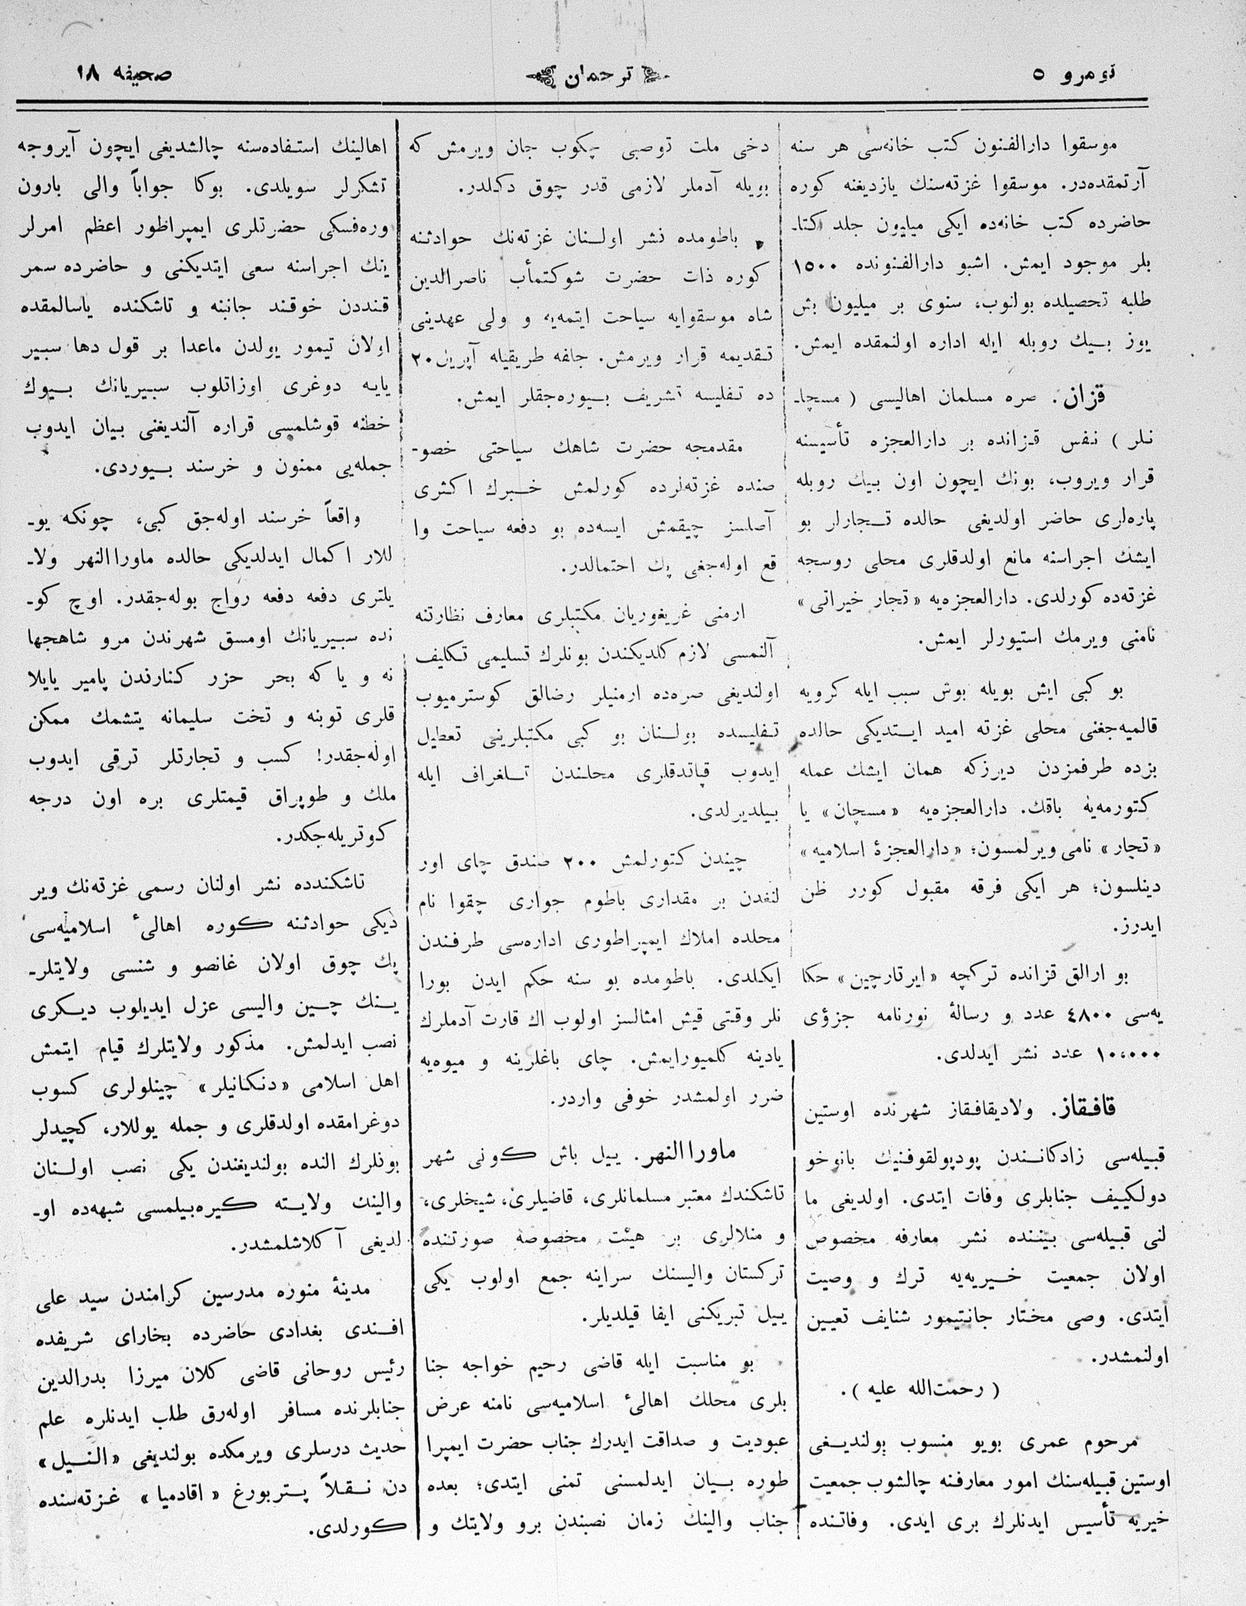 نومرو ٥
ترجمان
صحیفه ١٨
موسقوا دارالفنون کتب خانه‌سی هر سنه
آرتمقده‌در. موسقوا غزته‌سنك یازدیغنه کوره
حاضرده کتب خانه‌ده ایکی میلیون جلد کتا-
بلر موجود ایمش. اشبو دارالفنونده ١٥٠٠
طلبه تحصیلده بولنوب، سنوی بر میلیون بش
یوز بیك روبله ایله اداره اولنمقده ایمش.
قزان. صره مسلمان اهالیسی ( مسچا-
نلر ) نفس قزانده بر دارالعجزه تأسیسنه
قرار ویروب، بونك ایچون اون بیك روبله
پاره‌لری حاضر اولدیغی حالده تجارلر بو
ایشك اجراسنه مانع اولدقلری محلی روسجه
غزته‌ده کورلدی. دارالعجزه‌یه «تجار خیراتی»
نامنی ویرمك استیورلر ایمش.
بو کبی ایش بویله بوش سبب ایله کرویه
قالمیه‌جغنی محلی غزته امید ایتدیکی حالده
بزده طرفمزدن دیرزکه همان ایشك عمله
کتورمه‌یه باقك. دارالعجزه‌یه «مسچان» یا
«تجار» نامی ویرلمسون؛ «دارالعجزهٔ اسلامیه»
دینلسون؛ هر ایکی فرقه مقبول کورر ظن
ایدرز.
بو ارالق قزانده ترکچه «ایرتارچین» حکا
یه‌سی ٤٨٠٠ عدد و رسالهٔ نورنامه جزؤی
١٠،٠٠٠ عدد نشر ایدلدی.
قافقاز. ولادیقافقاز شهرنده اوستین
قبیله‌سی زادکانندن پودپولقوفنیك بانوخو
دولکییف جنابلری وفات ایتدی. اولدیغی ما
لنی قبیله‌سی بیننده نشر معارفه مخصوص
اولان جمعیت خیریه‌یه ترك و وصیت
ایتدی. وصی مختار جانتیمور شنایف تعیین
اولنمشدر.
( رحمت‌الله علیه ).
مرحوم عمری بویو منسوب بولندیغی
اوستین قبیله‌سنك امور معارفنه چالشوب جمعیت
خیریه تأسیس ایدنلرك بری ایدی. وفاتنده
دخی ملت توصبی چکوب جان ویرمش که
بویله آدملر لازمی قدر چوق دکلدر.
باطومده نشر اولنان غزته‌نك حوادثنه
کوره ذات حضرت شوکتمأب ناصرالدین
شاه موسقوایه سیاحت ایتمه‌یه و ولی عهدینی
تقدیمه قرار ویرمش. جلفه طریقیله آپریل ٢٠
ده تفلیسه تشریف بیوره‌جقلر ایمش.
مقدمجه حضرت شاهك سیاحتی خصو-
صنده غزته‌لرده کورلمش خبرك اکثری
آصلسز چیقمش ایسه‌ده بو دفعه سیاحت وا
قع اوله‌جغی پك احتمالدر.
ارمنی غریغوریان مکتبلری معارف نظارتنه
آلنمسی لازم کلدیکندن بونلرك تسلیمی تکلیف
اولندیغی صره‌ده ارمنیلر رضالق کوسترمیوب
تفلیسده بولنان بو کبی مکتبلرینی تعطیل
ایدوب قپاتدقلری محلندن تلغراف ایله
بیلدیرلدی.
چیندن کتورلمش ٢٠٠ صندق چای اور
لنغدن بر مقداری باطوم جواری چقوا نام
محلده املاك ایمپراطوری اداره‌سی طرفندن
ایکلدی. باطومده بو سنه حکم ایدن بورا
نلر وقتی قیش امثالسز اولوب اك قارت آدملرك
یادینه کلمیورایمش. چای باغلرینه و میوه‌یه
ضرر اولمشدر خوفی واردر.
ماوراالنهر. ییل باش کونی شهر
تاشکندك معتبر مسلمانلری، قاضیلری، شیخلری،
و منلالری بر هیئت مخصوصه صورتنده
ترکستان والیسنك سراینه جمع اولوب یکی
ییل تبریکنی ایفا قیلدیلر.
بو مناسبت ایله قاضی رحیم خواجه جنا
بلری محلك اهالیٔ اسلامیه‌سی نامنه عرض
عبودیت و صداقت ایدرك جناب حضرت ایمپرا
طوره بیان ایدلمسنی تمنی ایتدی؛ بعده
جناب والینك زمان نصبندن برو ولایتك و
اهالینك استفاده‌سنه چالشدیغی ایچون آیروجه
تشکرلر سویلدی. بوکا جواباً والی بارون
وره‌فسکی حضرتلری ایمپراظور اعظم امرلر
ینك اجراسنه سعی ایتدیکنی و حاضرده سمر
قنددن خوقند جانبنه و تاشکنده یاسالمقده
اولان تیمور یولدن ماعدا بر قول دها سبیر
یایه دوغری اوزاتلوب سبیریانك بیوك
خطنه قوشلمسی قراره آلندیغنی بیان ایدوب
جمله‌یی ممنون و خرسند بیوردی.
واقعاً خرسند اوله‌جق کبی، چونکه یو-
للار اکمال ایدلدیکی حالده ماوراالنهر ولا-
یلتری دفعه دفعه رواج بوله‌جقدر. اوچ کو-
نده سبیریانك اومسق شهرندن مرو شاهجها
نه و یاکه بحر حزر کنارندن پامیر یایلا
قلری توبنه و تخت سلیمانه یتشمك ممکن
اوله‌جقدر! کسب و تجارتلر ترقی ایدوب
ملك و طوپراق قیمتلری بره اون درجه
کوتریله‌جکدر.
تاشکندده نشر اولنان رسمی غزته‌نك ویر
دیکی حوادثنه کوره اهالیٔ اسلامیه‌سی
پك چوق اولان غانصو و شنسی ولایتلر-
ینك چین والیسی عزل ایدیلوب دیکری
نصب ایدلمش. مذکور ولایتلرك قیام ایتمش
اهل اسلامی «دنکانیلر» چینلولری کسوب
دوغرامقده اولدقلری و جمله یوللار، کچیدلر
بونلرك النده بولندیغندن یکی نصب اولنان
والینك ولایته کیره‌بیلمسی شبهه‌ده او-
لدیغی آکلاشلمشدر.
مدینهٔ منوره مدرسین کرامندن سید علی
افندی بغدادی حاضرده بخارای شریفده
رئیس روحانی قاضی کلان میرزا بدرالدین
جنابلرنده مسافر اوله‌رق طلب ایدنلره علم
حدیث درسلری ویرمکده بولندیغی «النیل»
دن نقلاً پتربورغ «اقادمیا» غزته‌سنده
کورلدی.